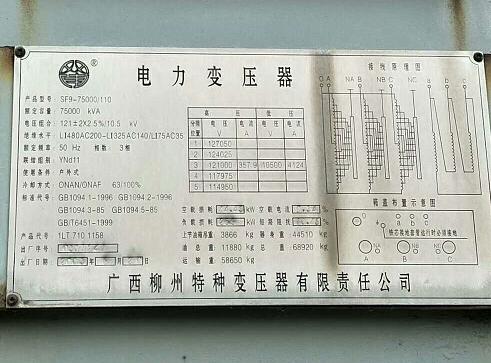 kVA
电力变压器
接线原理图
产品型号 SF9-75000/110
额定容量 75000 kVA
电压组合 121±2X2.5%/10.5 kV
绝缘水平 LI480AC200-LI325AC140/LI75AC35
额定频率 50 Hz 相数 3相
联结组别 YNd11
使用条件 户外式
冷却方式 ONAN/ONAF 63/100%
标准代号 GB1094.1-1996 GB1094.2-1996
GB1094.3-85 GB1094.5-85
GB/T6451-1999
产品代号 1LT.710.1158
出厂序号
出厂日期 年 月
高压 低压
分接位置 电压 电流 电压 电流
V A V A
1 127050
2 124025
3 121000 357.9 10500 4124
4 117975
5 114950
空载损耗 kW 空载电流 %
负载损耗 kW 短路阻抗 %
上节油箱吊重 3866 kg 器身重 44510 kg
油总重 11880 kg 总重 68920 kg
运输重 58650 kg
O A NA B NB C NC a b c
箱盖布置示意图
o a b c
铁芯接地套管运行时必须接地
O A B C
NA NB NC
广西柳州特种变压器有限责任公司